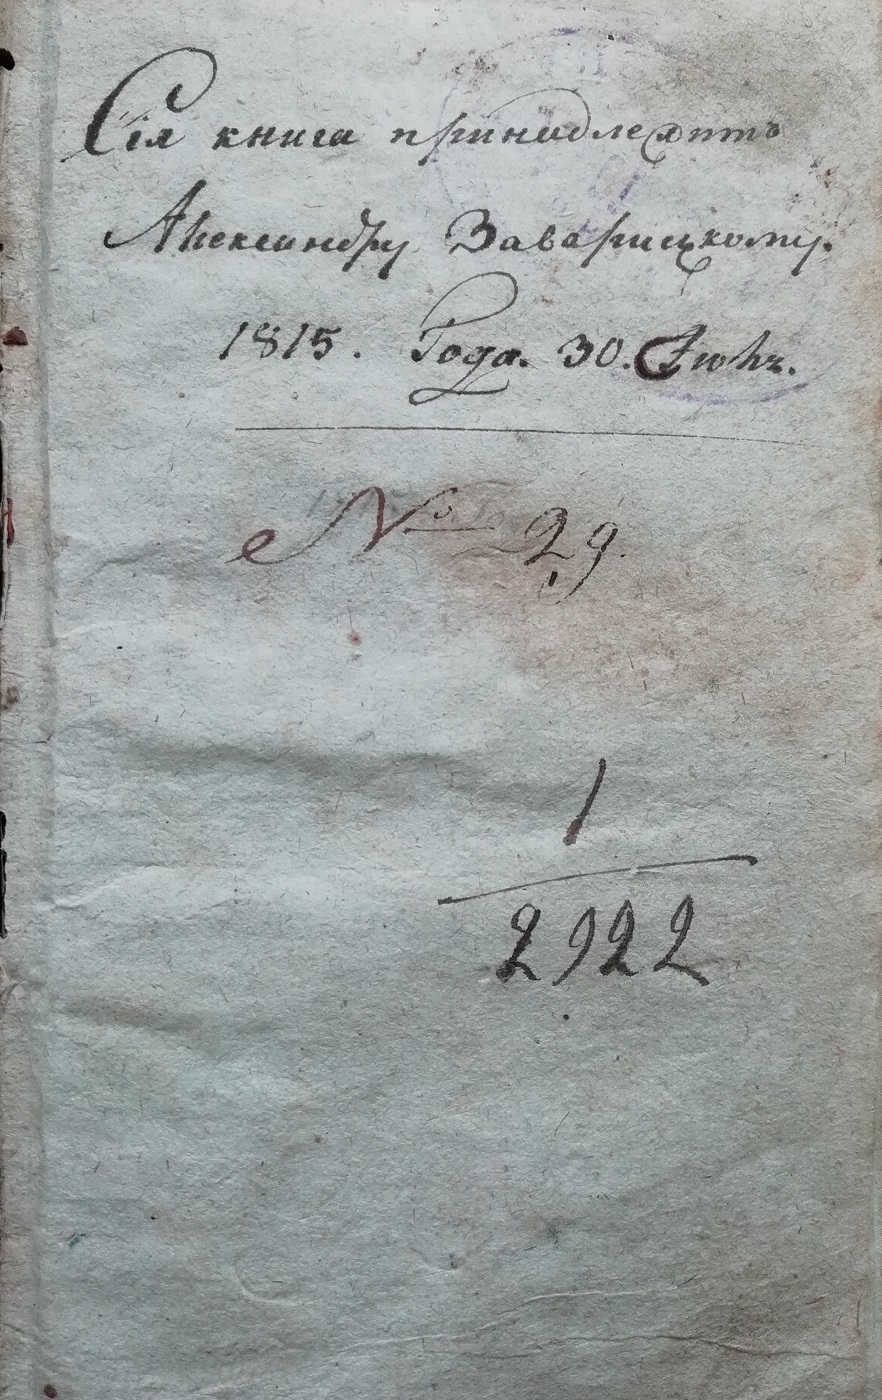 Сія книга принадлежитъ
Александру Заварицкому.
1815. Года. 30. Іюля.
№ 29.
1
2922